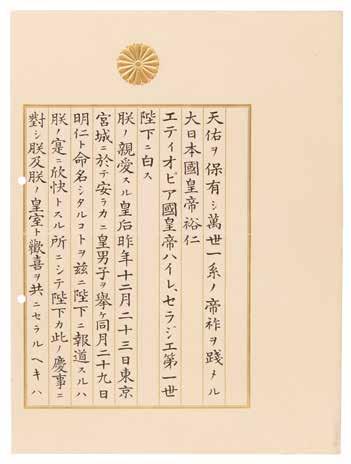 天佑ヲ保有シ萬世一系ノ帝祚ヲ踐メル
大日本國皇帝裕仁
エティオピア國皇帝ハイレ、セラシエ第一世
陛下ニ白ス
朕ノ親愛スル皇后昨年十二月二十三日東京
宮城ニ於テ安ラカニ皇男子ヲ擧ケ同月二十九日
明仁ト命名シタルコトヲ玆ニ陛下ニ報道スルハ
朕ノ寔ニ欣快トスル所ニシテ陛下カ此ノ慶事ニ
對シ朕及朕ノ皇室ト歡喜ヲ共ニセラルヘキハ